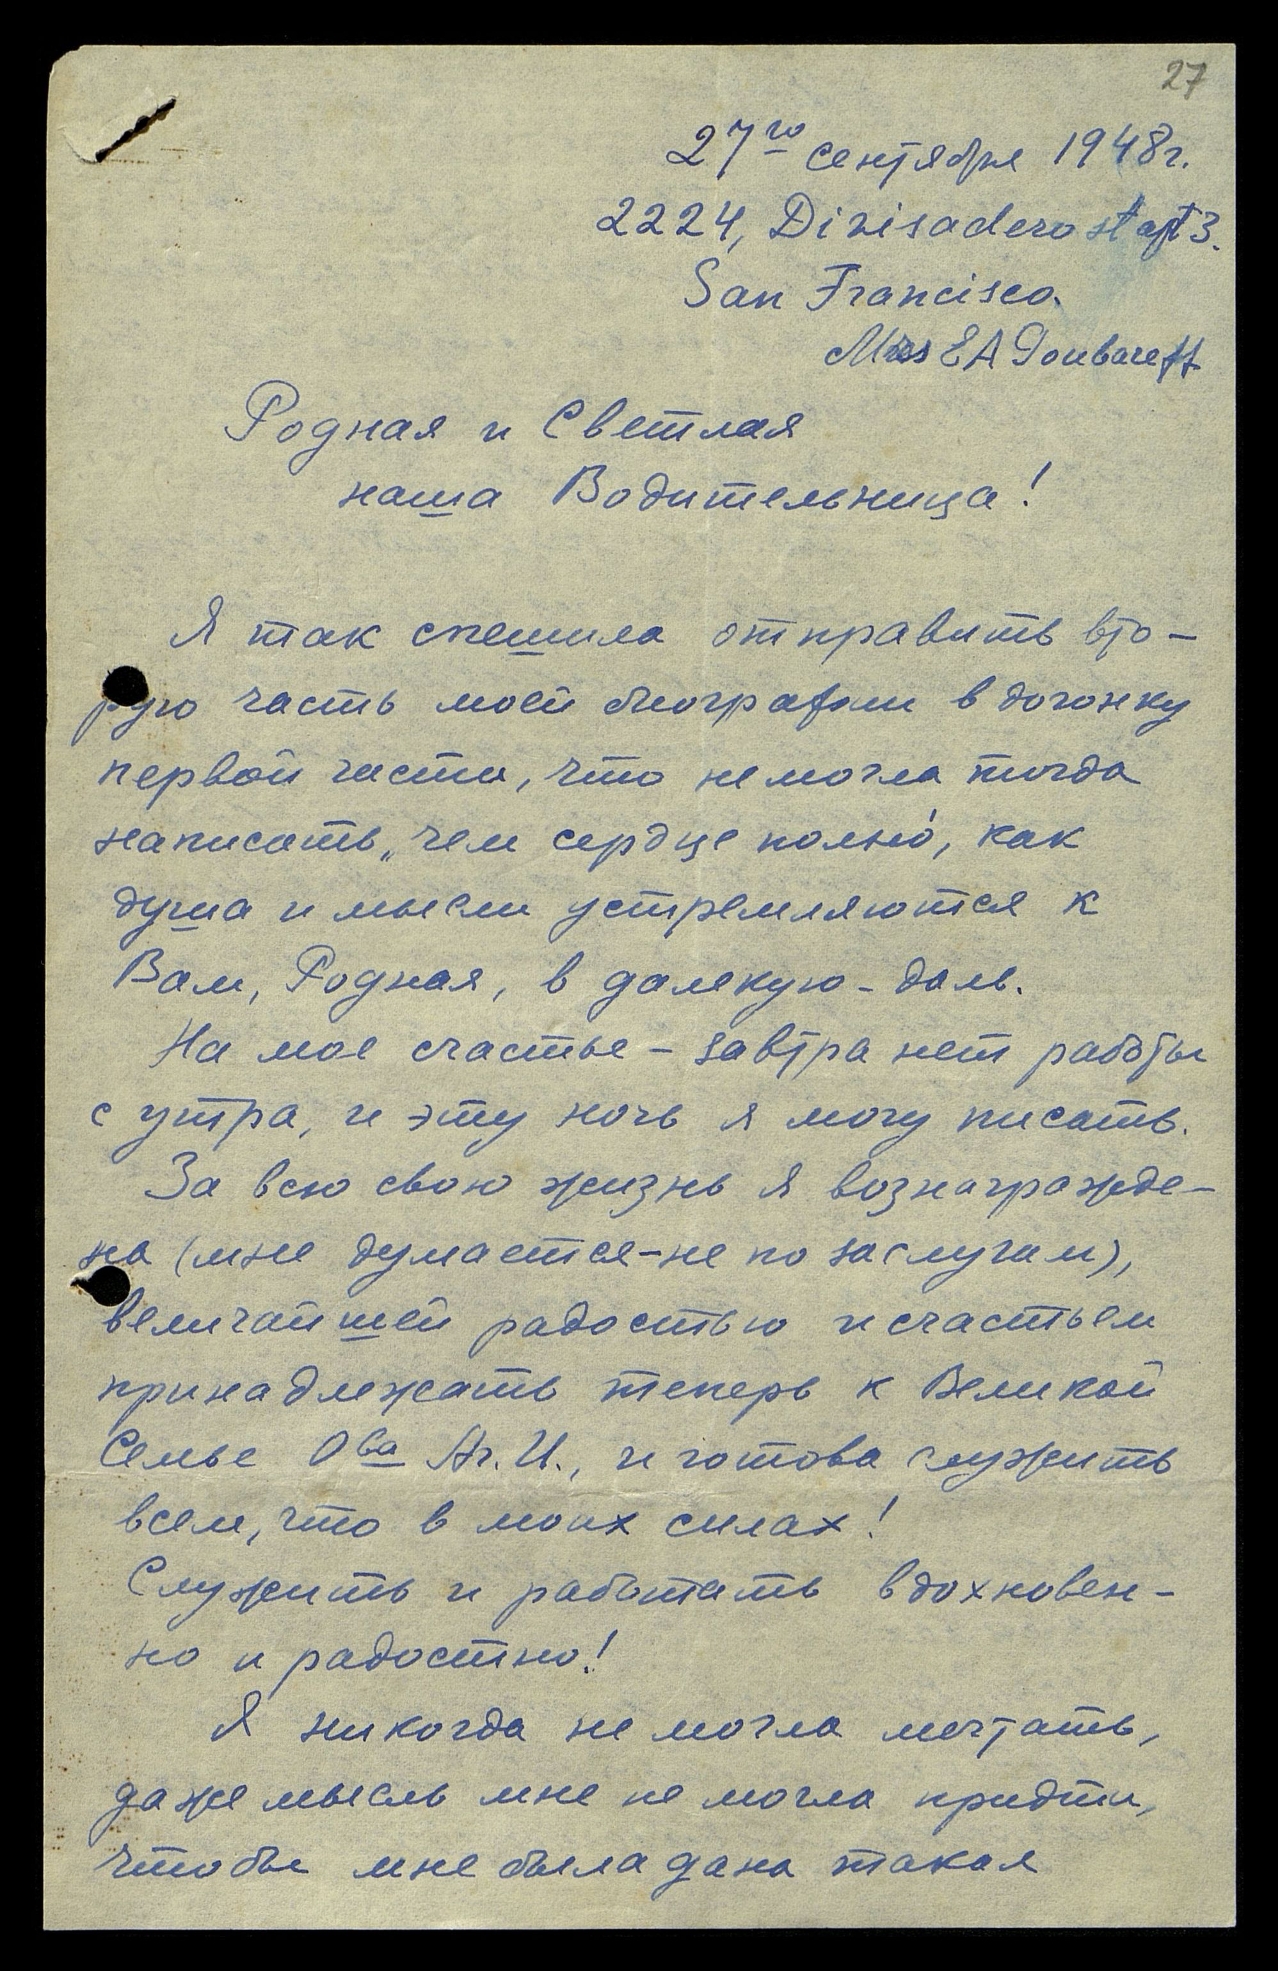 27
27го сентября 1948г.
2224, Divisadero st apt 3.
San Francisco.
Mrs E A Goubareff
Родная и Светлая
наша Водительница!
Я так спешила отправить вто-
рую часть моей биографии в догонку
первой части, что не могла тогда
написать „чем сердце полно, как
душа и мысли устремляются к
Вам, Родная, в далекую-даль.
На мое счастье – завтра нет работы
с утра, и эту ночь я могу писать.
За всю свою жизнь я вознагражде-
на (мне думается-не по заслугам),
величайшей радостью и счастьем
принадлежать теперь к Великой
Семье Ова Аг. И., и готова служить
всем, что в моих силах!
Служить и работать вдохновен-
но и радостно!
Я никогда не могла мечтать,
даже мысль мне не могла придти,
чтобы мне была дана такая